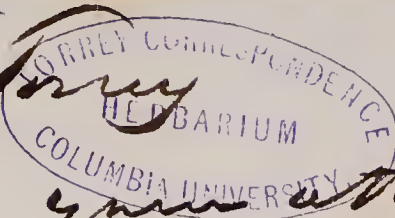 Torrey
TORREY CORRESPONDENCE
HERBARIUM
COLUMBIA UNIVERSITY
your